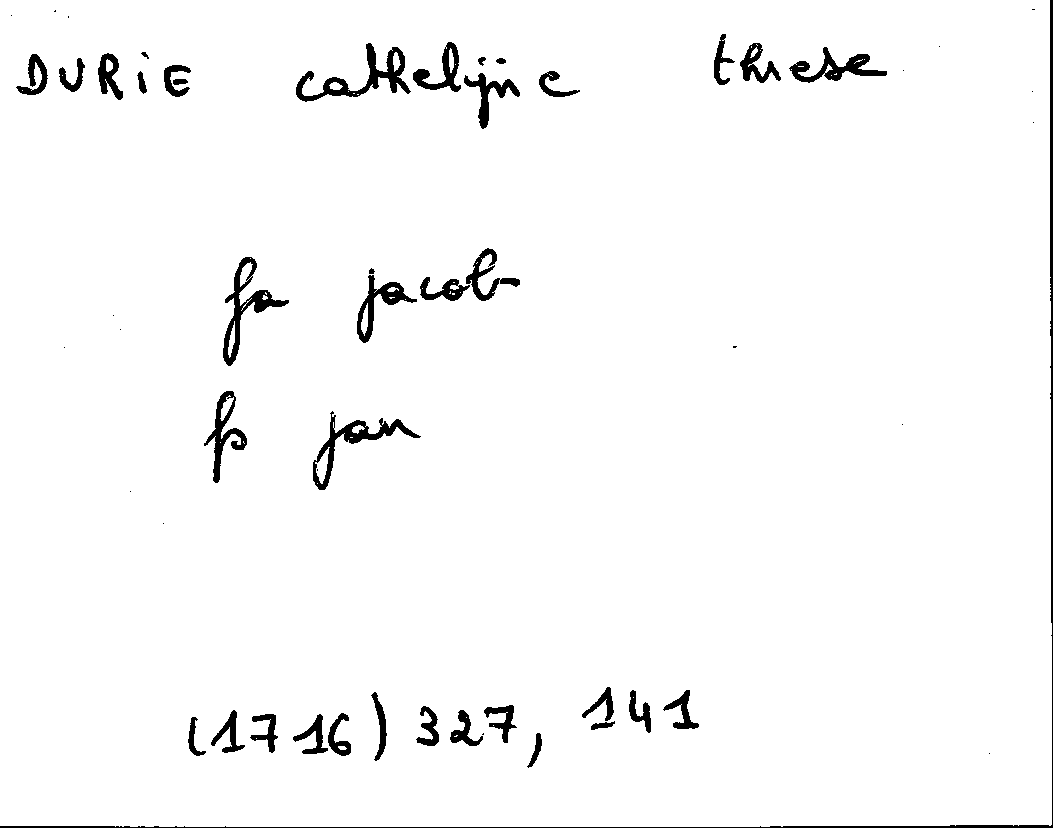 DURiE cathelijne threse
fa jacob
fs jan
(1716) 327, 141